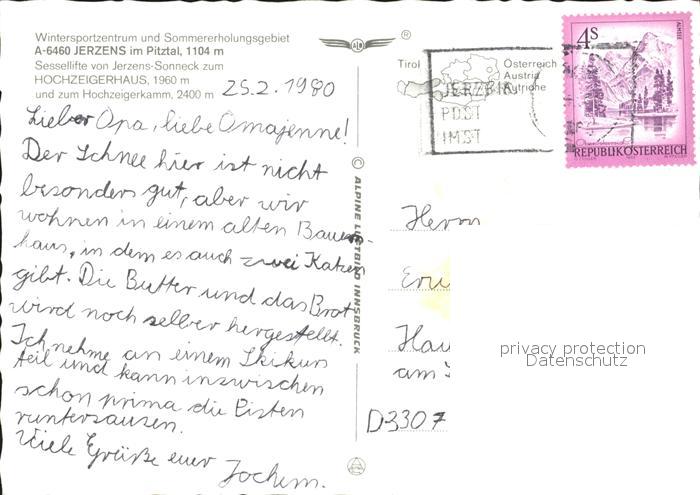 Wintersportzentrum und Sommererholungsgebiet
A-6460 JERZENS im Pitztal, 1104 m
Sessellifte von Jerzens-Sonneck zum
HOCHZEIGERHAUS, 1960 m
und zum Hochzeigerkamm, 2400 m
25.2.1980
Lieber Opa, liebe Omajenne!
Der Schnee hier ist nicht
besonders gut, aber wir
wohnen in einem alten Bauern-
haus, in dem es auch zwei Katzen
gibt. Die Butter und das Brot
wird noch selber hergestellt.
Ich nehme an einem Skikurs
teil und kann inzwischen
schon prima die Pisten
runtersausen.
Viele Grüße euer Jochem.
®
© ALPINE LUFTBILD INNSBRUCK
Tirol
Österreich
Austria
Autriche
POST
IMST
4S
ALMSEE
REPUBLIK ÖSTERREICH
Herrn
am
D3307
privacy protection
Datenschutz